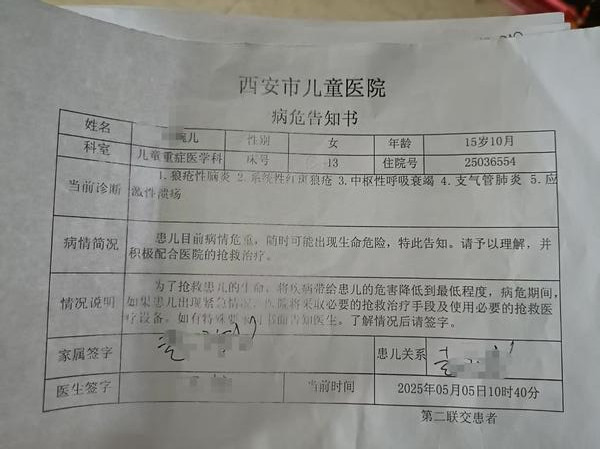 西安市儿童医院
病危告知书
姓名 婉儿 性别 女 年龄 15岁10月
科室 儿童重症医学科 床号 13 住院号 25036554
当前诊断 1.狼疮性脑炎 2.系统性红斑狼疮 3.中枢性呼吸衰竭 4.支气管肺炎 5.应
激性溃疡
病情简况 患儿目前病情危重，随时可能出现生命危险，特此告知。请予以理解，并
积极配合医院的抢救治疗。
情况说明 为了抢救患儿的生命，将疾病带给患儿的危害降低到最低程度，病危期间，
如果患儿出现紧急情况，医院将采取必要的抢救治疗手段及使用必要的抢救医
疗设备。如有特殊要求 书面告知医生。了解情况后请签字。
家属签字 患儿关系
医生签字 当前时间 2025年05月05日10时40分
第二联交患者